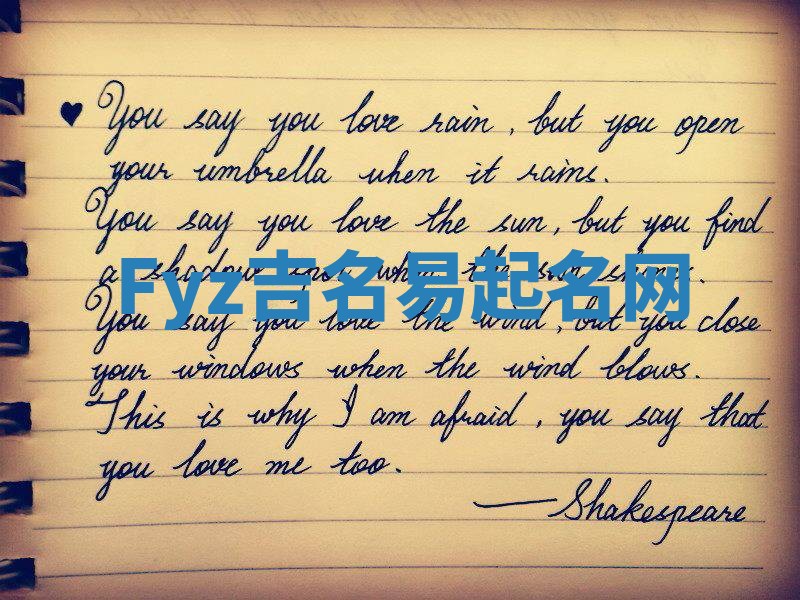 ♥ You say you love rain, but you open
your umbrella when it rains.
You say you love the sun, but you find
a shadow spot when the sun shines.
Fyz吉名易起名网
You say you love the wind, but you close
your windows when the wind blows.
This is why I am afraid, you say that
you love me too.
— Shakespeare